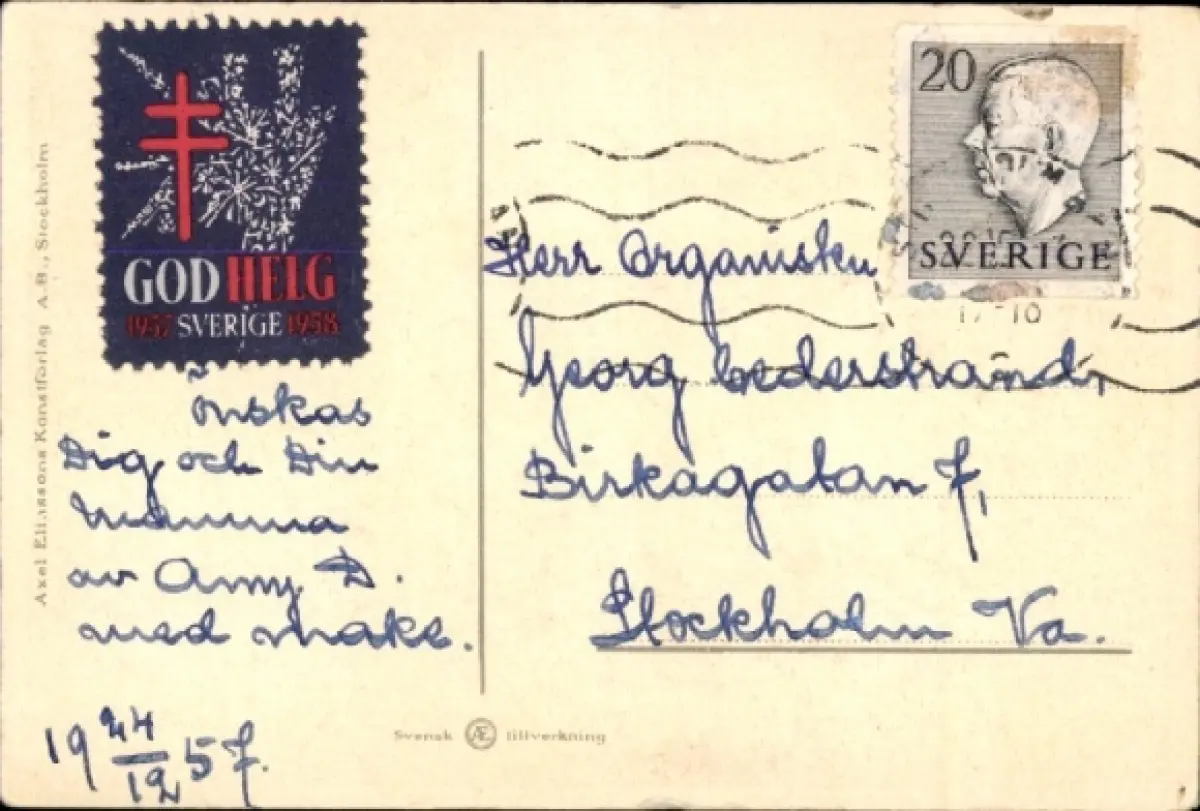 GOD HELG
1957 SVERIGE 1958
önskas
Dig och Din
Mamma
av Anny D.
med make.
19 24/12 57.
Axel Eliassons Konstförlag A.-B., Stockholm
Svensk Æ tillverkning
20
SVERIGE
17-18
Herr Organisten
Georg Cederstrand,
Birkagatan 7,
Stockholm Va.